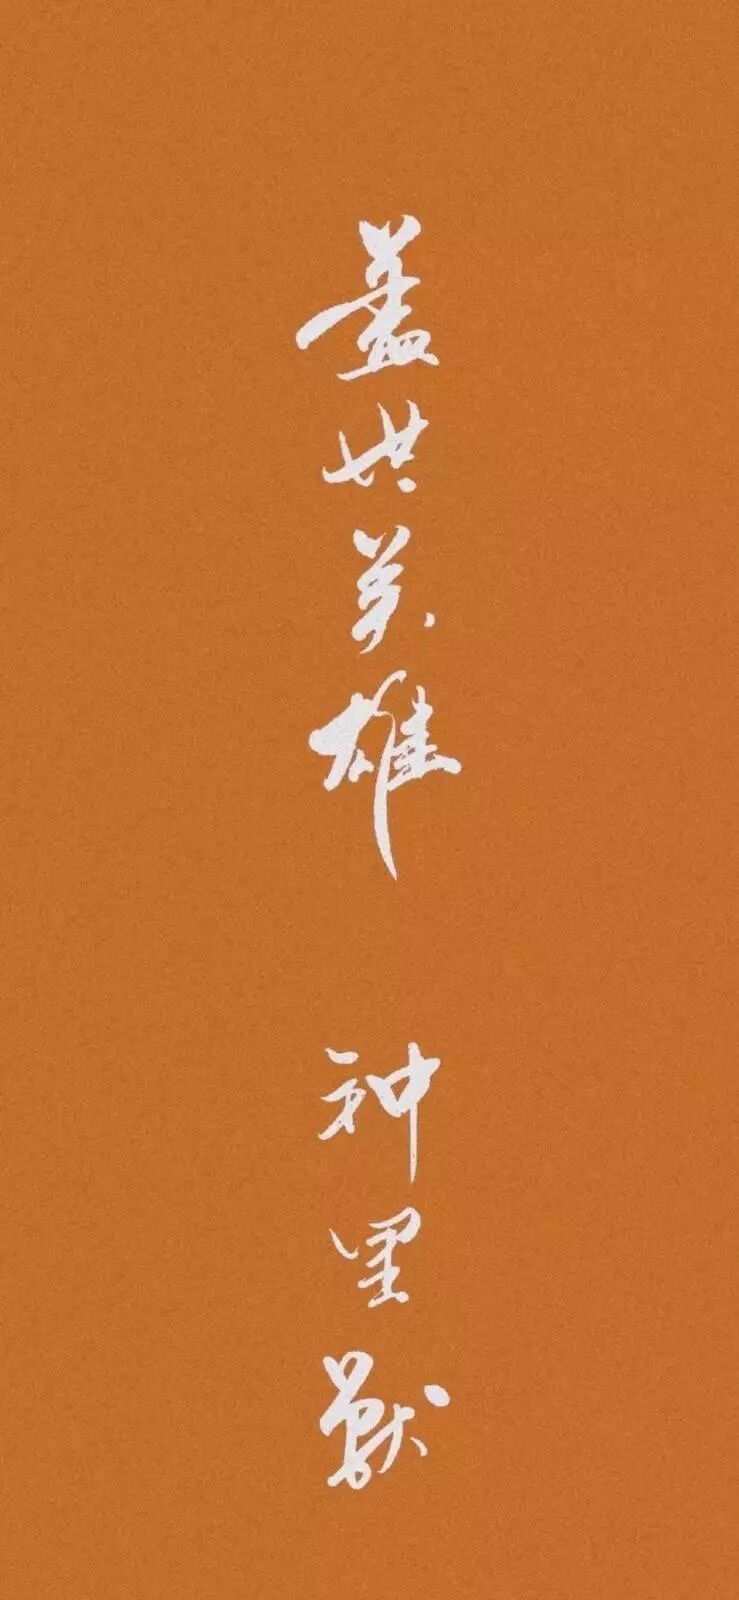 盖世英雄
神里獸